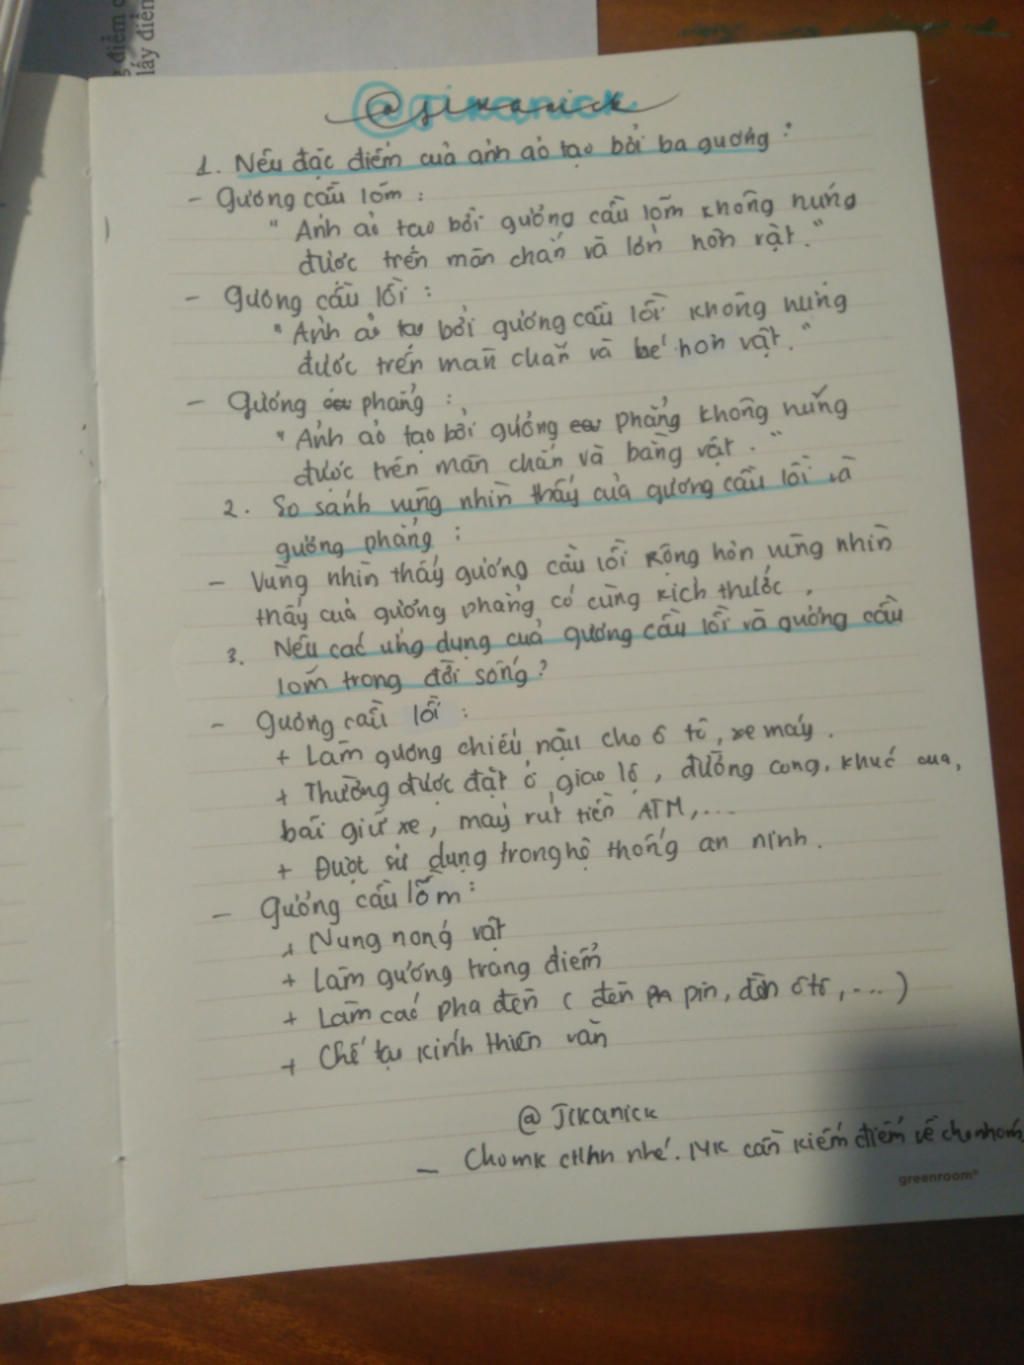 g điểm c
lấy điển
@Jikanick
1. Nêu đặc điểm của ảnh ảo tạo bởi ba gương :
- Gương cầu lõm :
" Ảnh ảo tạo bởi gương cầu lõm không hứng
được trên màn chắn và lớn hơn vật. "
- Gương cầu lồi :
" Ảnh ảo tạo bởi gương cầu lồi không hứng
được trên màn chắn và bé hơn vật. "
- Gương phẳng :
" Ảnh ảo tạo bởi gương phẳng không hứng
được trên màn chắn và bằng vật. "
2. So sánh vùng nhìn thấy của gương cầu lồi và
gương phẳng :
- Vùng nhìn thấy gương cầu lồi rộng hơn vùng nhìn
thấy của gương phẳng có cùng kích thước.
3. Nêu các ứng dụng của gương cầu lồi và gương cầu
lõm trong đời sống ?
- Gương cầu lồi :
+ Làm gương chiếu hậu cho ô tô, xe máy.
+ Thường được đặt ở giao lộ, đường cong, khúc cua,
bãi giữ xe, máy rút tiền ATM,...
+ Được sử dụng trong hệ thống an ninh.
- Gương cầu lõm :
+ Nung nóng vật
+ Làm gương trang điểm
+ Làm các pha đèn ( đèn pin, đèn ôtô, .... )
+ Chế tạo kính thiên văn
@ Jikanick
- Cho mk ctlhn nhé. Mk cần kiếm điểm về cho nhóm
greenroom